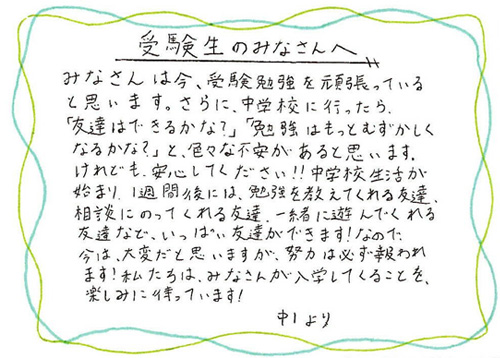 受験生のみなさんへ
みなさんは今、受験勉強を頑張っている
と思います。さらに、中学校に行ったら、
「友達はできるかな？」「勉強はもっとむずかしく
なるかな？」と、色々な不安があると思います。
けれども、安心してください!!中学校生活が
始まり、1週間後には、勉強を教えてくれる友達、
相談にのってくれる友達、一緒に遊んでくれる
友達など、いっぱい友達ができます!なので、
今は、大変だと思いますが、努力は必ず報われ
ます!私たちは、みなさんが入学してくることを、
楽しみに待っています!
中1より